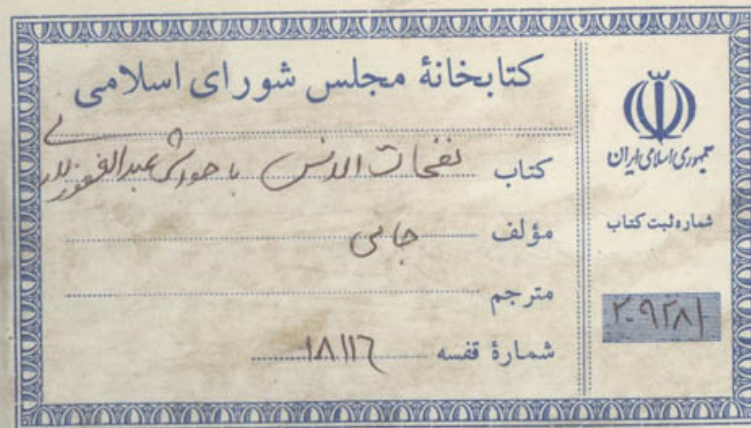 کتابخانهٔ مجلس شورای اسلامی
کتاب نفحات الانس با حواشی عبدالغفور لاری
مؤلف جامی
مترجم
شمارهٔ قفسه ۱۸۱۱۶
جمهوری اسلامی ایران
شماره ثبت کتاب
۲۰۹۲۸۱